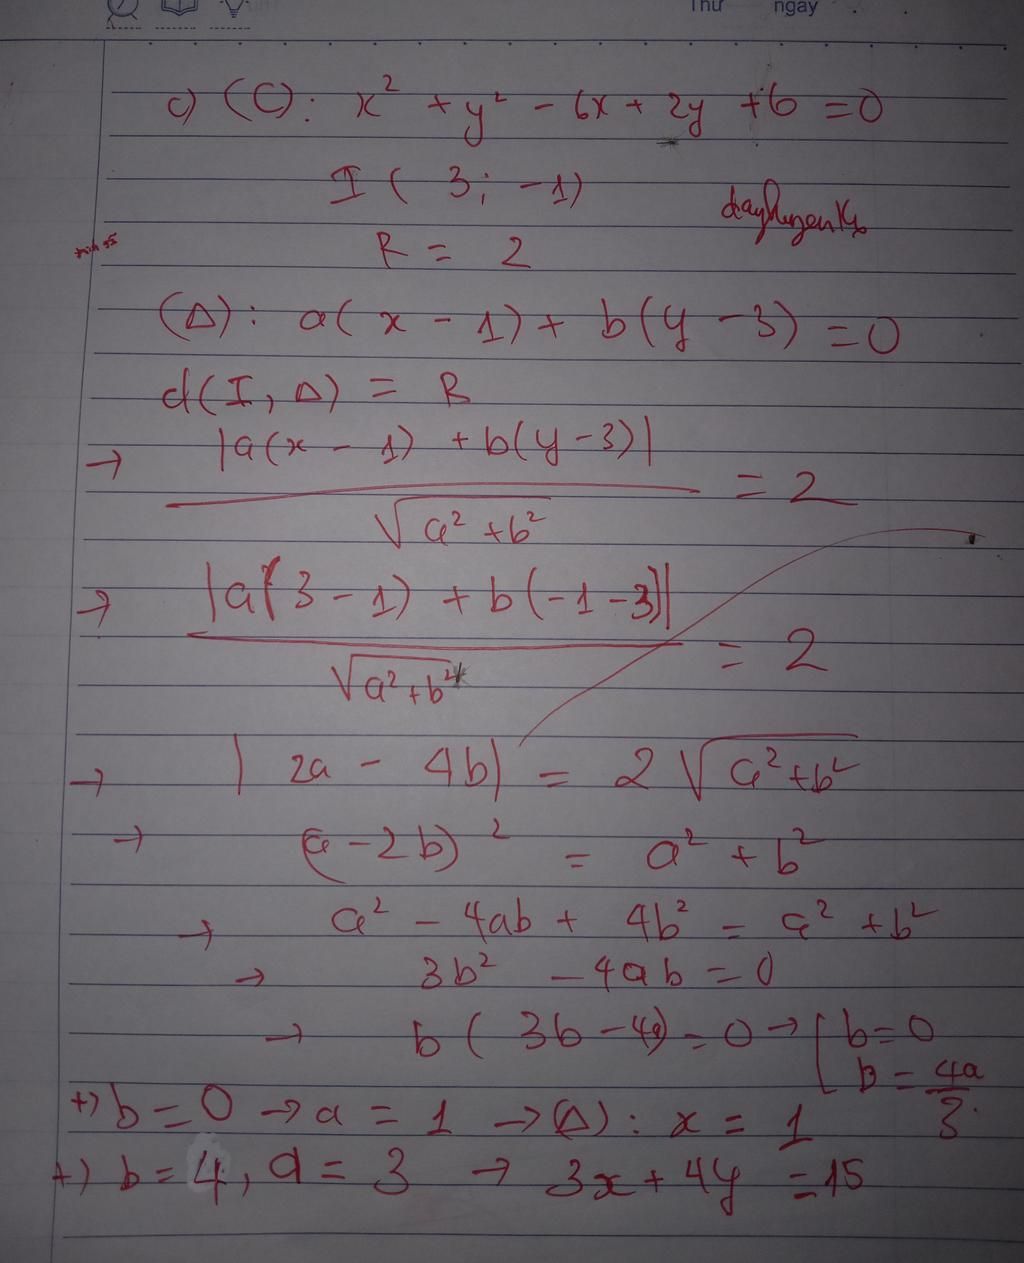 Thứ ngày
c) (C): x² + y² - 6x + 2y + 6 = 0
I ( 3; -1)
R = 2
(Δ): a( x - 1) + b(y - 3) = 0
d(I, Δ) = R
→ |a(x - 1) + b(y - 3)| / √a² + b² = 2
→ |a(3 - 1) + b(-1 - 3)| / √a² + b² = 2
→ | 2a - 4b| = 2 √a² + b²
→ (a - 2b)² = a² + b²
→ a² - 4ab + 4b² = a² + b²
→ 3b² - 4ab = 0
→ b ( 3b - 4a) = 0 → [ b = 0
b = 4a/3
+) b = 0 → a = 1 → (Δ): x = 1
+) b = 4, a = 3 → 3x + 4y = 15